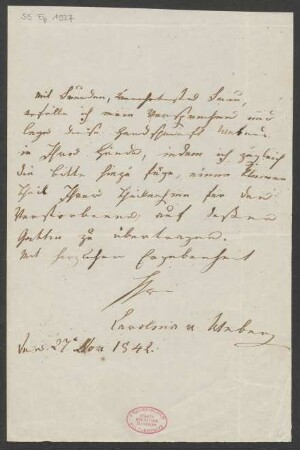 55 Ep 1927
Mit Freuden, verehrtester Frau,
erfülle ich mein Versprechen und
lege diese Handschrift Webers
in Ihre Hände, indem ich zugleich
die Bitte hinzu füge, einen kleinen
Theil Ihrer Theilnahme für den
Verstorbenen auf deßen
Gattin zu übertragen.
Mit herzlicher Ergebenheit
Ihre
Carolina v Weber
27 1842.